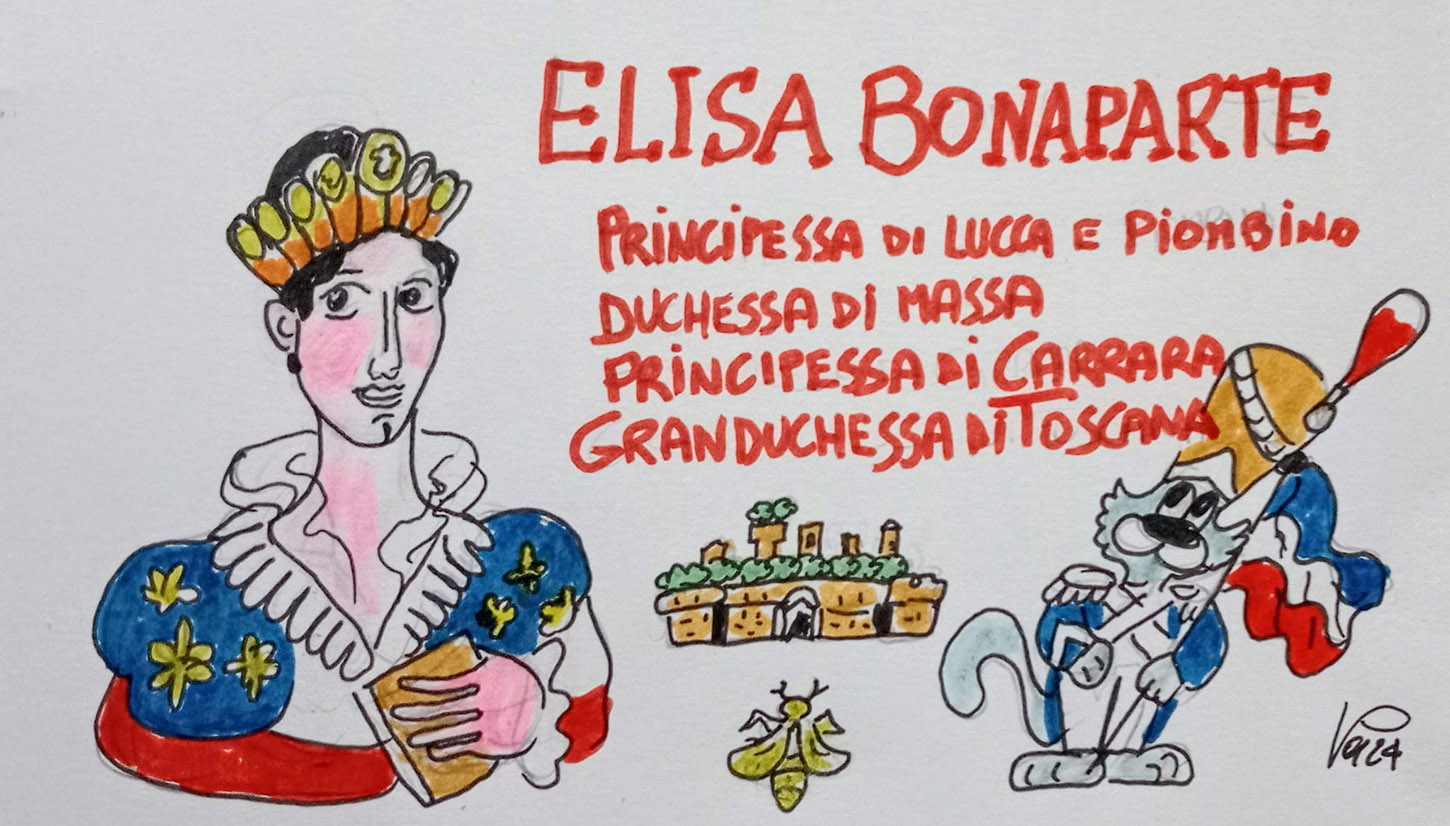 ELISA BONAPARTE
PRINCIPESSA DI LUCCA E PIOMBINO
DUCHESSA DI MASSA
PRINCIPESSA DI CARRARA
GRANDUCHESSA DI TOSCANA